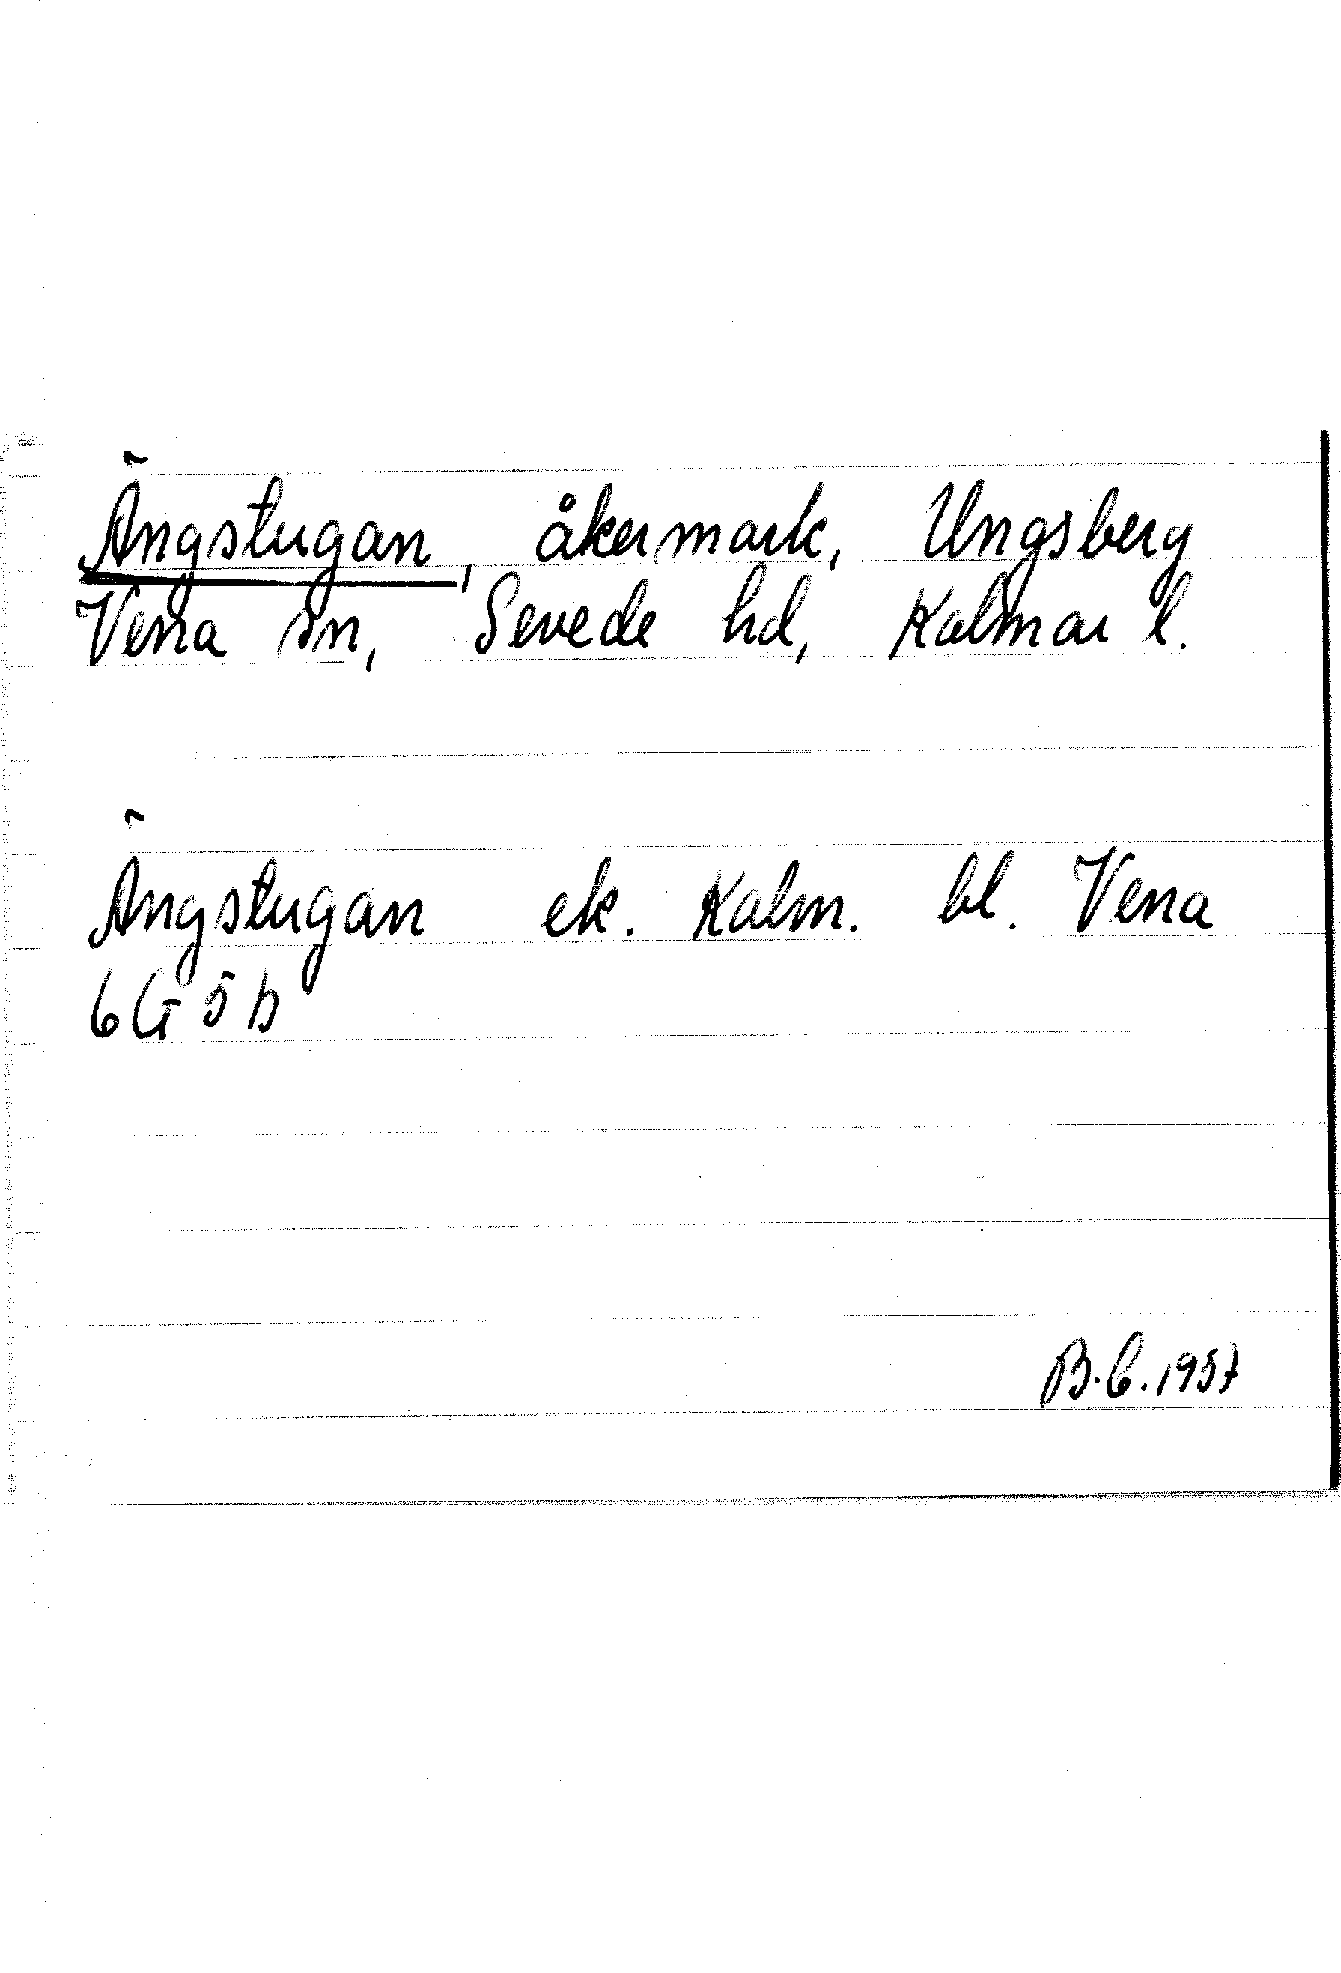 Ängstugan, åkermark, Ungsberg
Vena sn, Sevede hd, Kalmar l.
Ängstugan ek. Kalm. bl. Vena
6G5b
B.C.1957